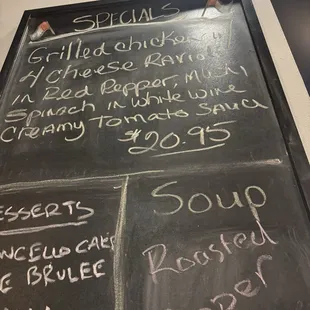 SPECIALS
Grilled chicken
4 Cheese Ravioli
in Red Pepper, Mush
Spinach in white wine
Creamy Tomato Sauce
$20.95
ESSERTS
NCELLO CAKE
E BRULEE
Soup
Roasted
pper